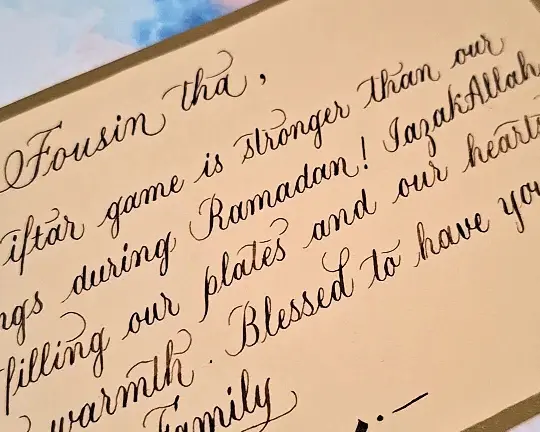 Fousin tha,
iftar game is stronger than our
ngs during Ramadan! JazakAllah
filling our plates and our hearts
warmth. Blessed to have you
Family